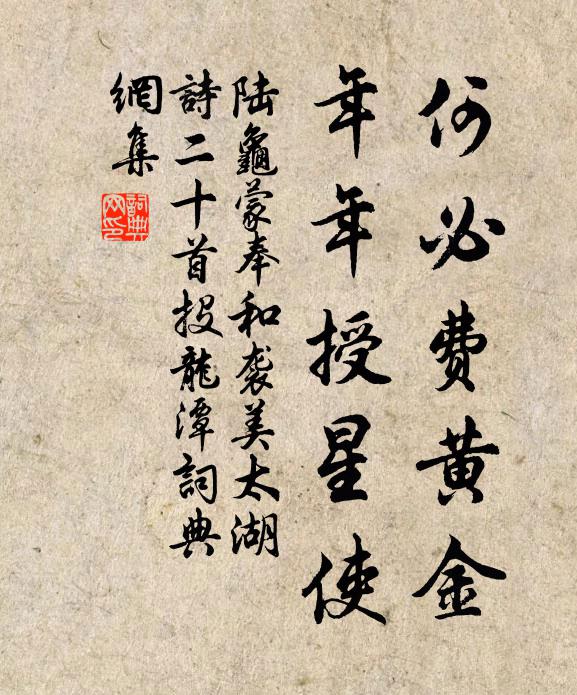 何必費黃金
年年授星使
陸龜蒙奉和袭美太湖
詩二十首投龍潭詞典
網集
詞典網印